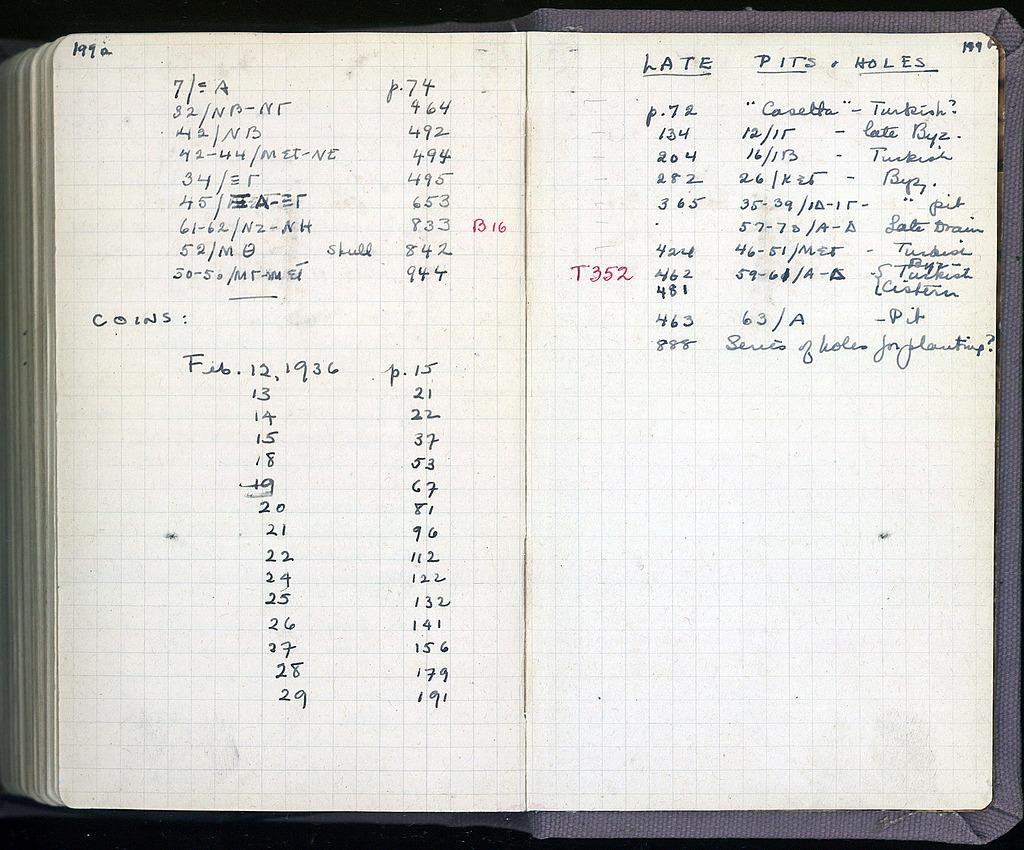 199a
7/Ξ A p.74
32/ΝΒ-ΝΓ 464
42/ΝΒ 492
42-44/ΜΕΤ-ΝΕ 494
34/ΞΓ 495
45/ΞΑ-ΞΓ 653
61-62/ΝΖ-ΝΗ 833 B16
52/ΜΘ Skull 842
50-50/ΜΓ-ΜΕΤ 944
COINS:
Feb. 12, 1936 p.15
13 21
14 22
15 37
18 53
19 67
20 81
21 96
22 112
24 122
25 132
26 141
27 156
28 179
29 191
199b
LATE PITS & HOLES
p.72 "Caselta" - Turkish?
134 12/ΙΓ - late Byz.
204 16/ΙΒ - Turkish
282 26/ΚΕΓ - Byz.
365 35-39/ΙΔ-ΙΓ- " pit
57-70/Α-Δ Late Drain
424 46-51/ΜΕΤ - Turkish
Byz.
T352 462 59-61/Α-Δ { Turkish
481 Cistern
463 63/A -Pit
888 Series of holes for planting?